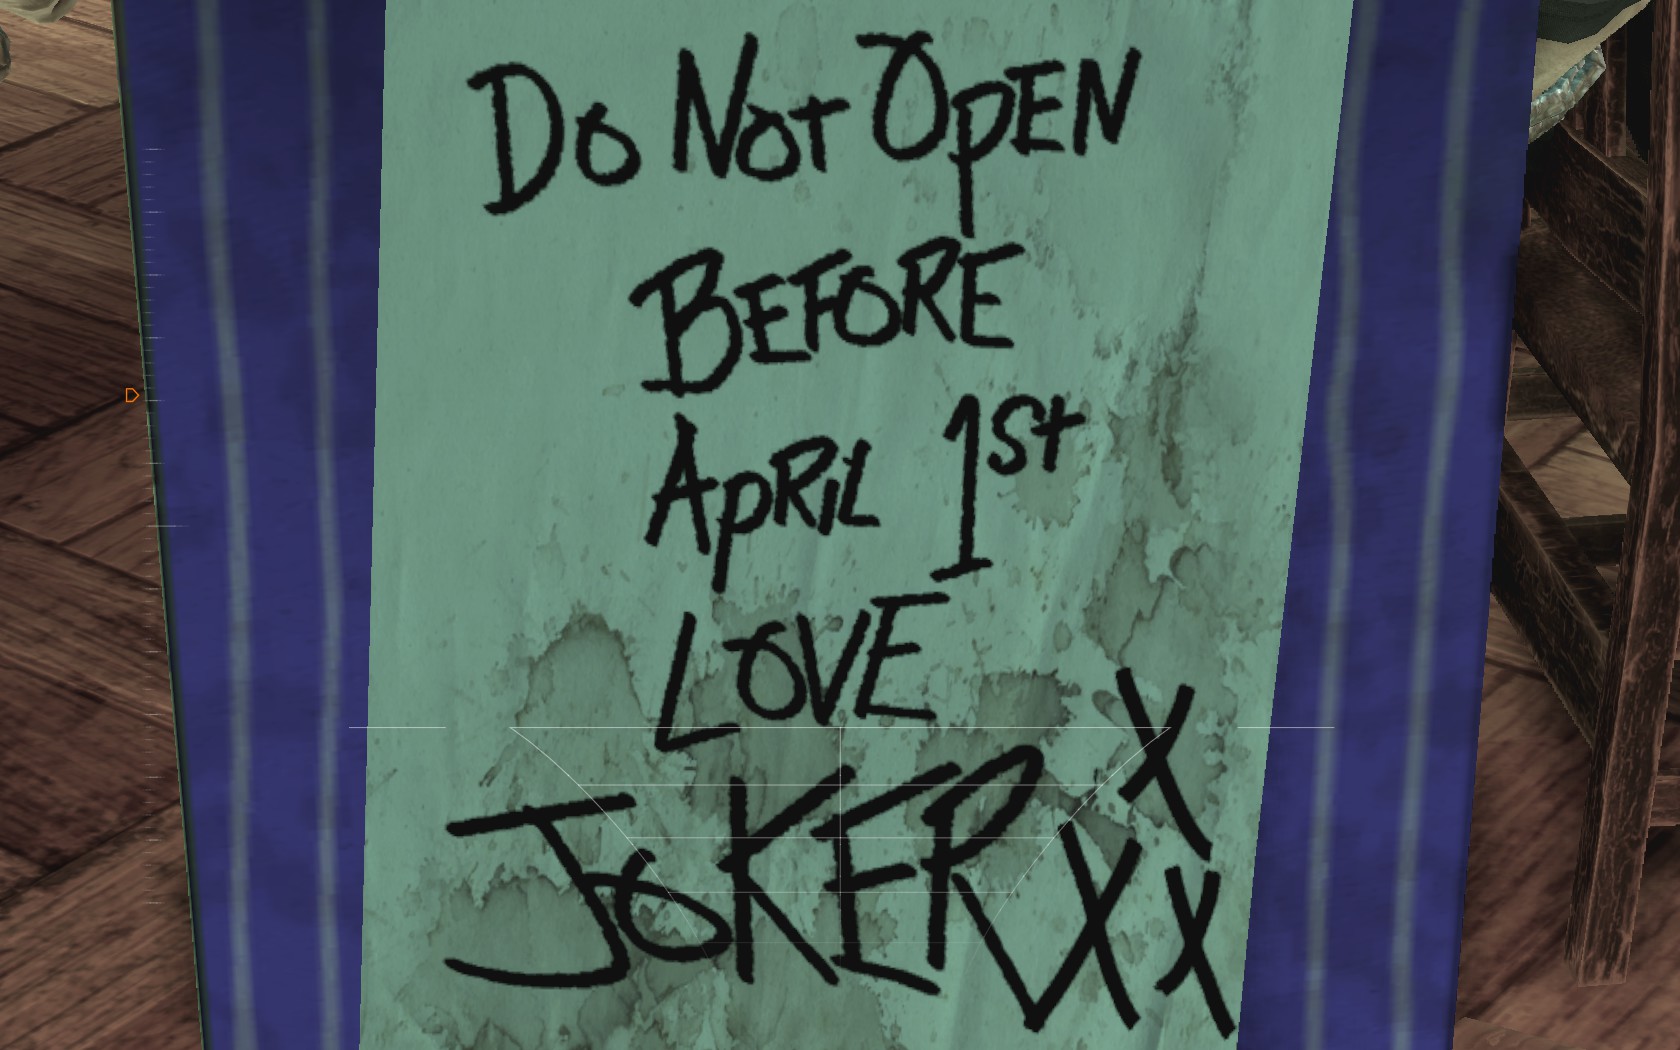 Do Not Open
Before
April 1st
Love
Joker xxx